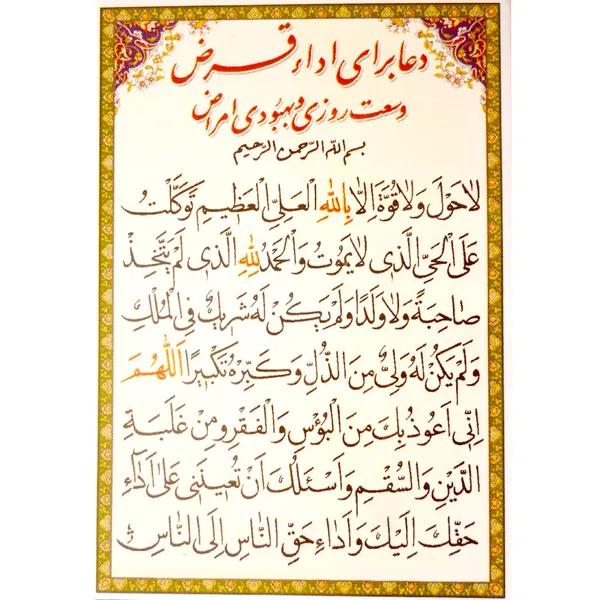 دعا برای اداء قرض
وسعت روزی و بهبودی امراض
بسم الله الرّحمن الرّحیم
لاٰ حَوْلَ وَ لاٰ قُوَّةَ اِلاّٰ بِاللّٰهِ الْعَلِیِّ الْعَظیمِ تَوَکَّلْتُ
عَلَی الْحَیِّ الَّذی لاٰ یَمُوتُ وَ الْحَمْدُ لِلّٰهِ الَّذی لَمْ یَتَّخِذْ
صٰاحِبَةً وَ لاٰ وَلَدًا وَ لَمْ یَکُنْ لَهُ شَریكٌ فِی الْمُلْكِ
وَ لَمْ یَکُنْ لَهُ وَلِیٌّ مِنَ الذُّلِّ وَ کَبِّرْهُ تَکْبیرًا اَللّٰهُمَّ
اِنّی اَعُوذُ بِكَ مِنَ الْبُؤْسِ وَ الْفَقْرِ وَ مِنْ غَلَبَةِ
الدَّیْنِ وَ السُّقْمِ وَ اَسْئَلُكَ اَنْ تُعینَنی عَلیٰ اَدٰاءِ
حَقِّكَ اِلَیْكَ وَ اَدٰاءِ حَقِّ النّٰاسِ اِلَی النّٰاسِ